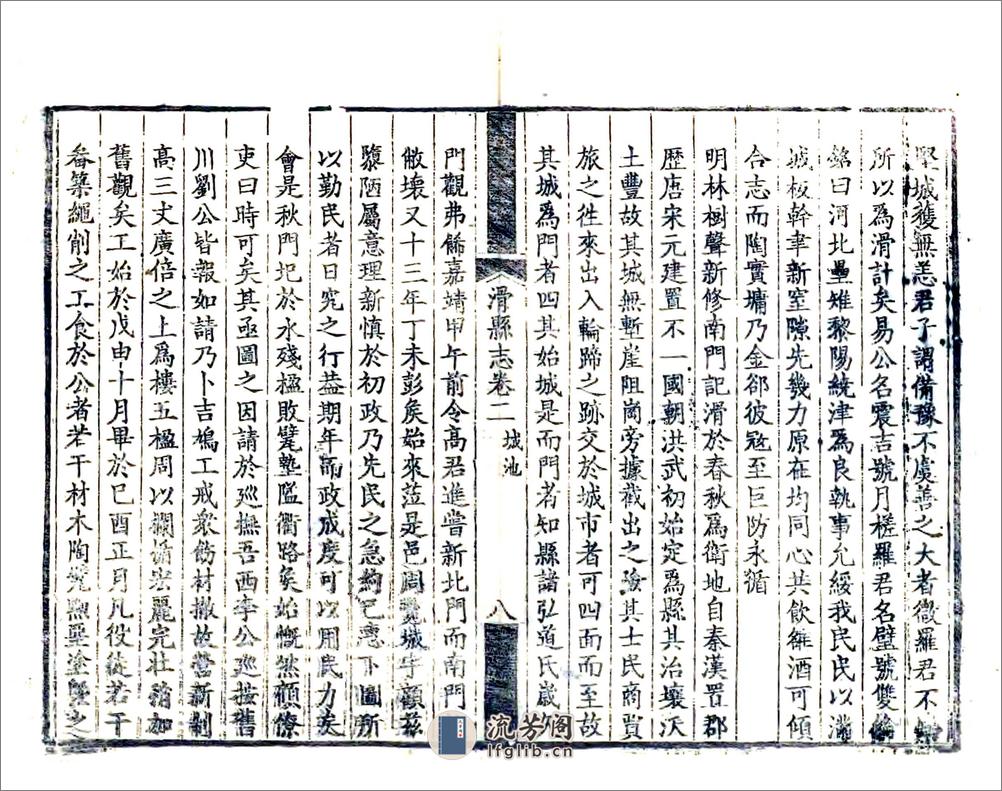 堅城獲無恙君子謂備豫不虞善之大者微羅君不
所以爲滑計矣易公名震吉號月槎羅君名璧號雙
銘曰河北壘雉黎陽繞津爲良執事允綏我民民以
城板幹聿新室隙先幾力原在均同心共飲雒酒可傾
合志而陶實墉乃金郤彼冦至巨防永循
明林樹聲新修南門記滑於春秋爲衛地自秦漢置郡
歷唐宋元建置不一國朝洪武初始定爲縣其治壤沃
土豐故其城無塹崖阻崗旁據截出之險其士民商賈
旅之徃來出入輪蹄之跡交於城市者可四面而至故
其城爲門者四其始城是而門者知縣諸弘道氏歲
滑縣志卷二
城池
八
門觀弗餙嘉靖甲午前令高君進嘗新北門而南門
敝壞又十三年丁未彭矦始來蒞是邑周覽城宇顧茲
隳陋屬意理新慎於初政乃先民之急約已惠下圖所
以勤民者日究之行葢期年而政成度可以用民力矣
會是秋門圮於水殘楹敗甓墊隘衢路矣始慨然顧僚
吏曰時可矣其亟圖之因請於廵撫吾西李公廵按舊
川劉公皆報如請乃卜吉鳩工戒衆飭材撤故嘗新制
高三丈廣倍之上爲樓五楹周以欄
宏麗完壯稍加
舊觀矣工始於戊申十月畢於已酉正月凡役徒若干
畚築繩削之工食於公者若干材木陶甓
塗墍之
流芳阁
lfglib.cn